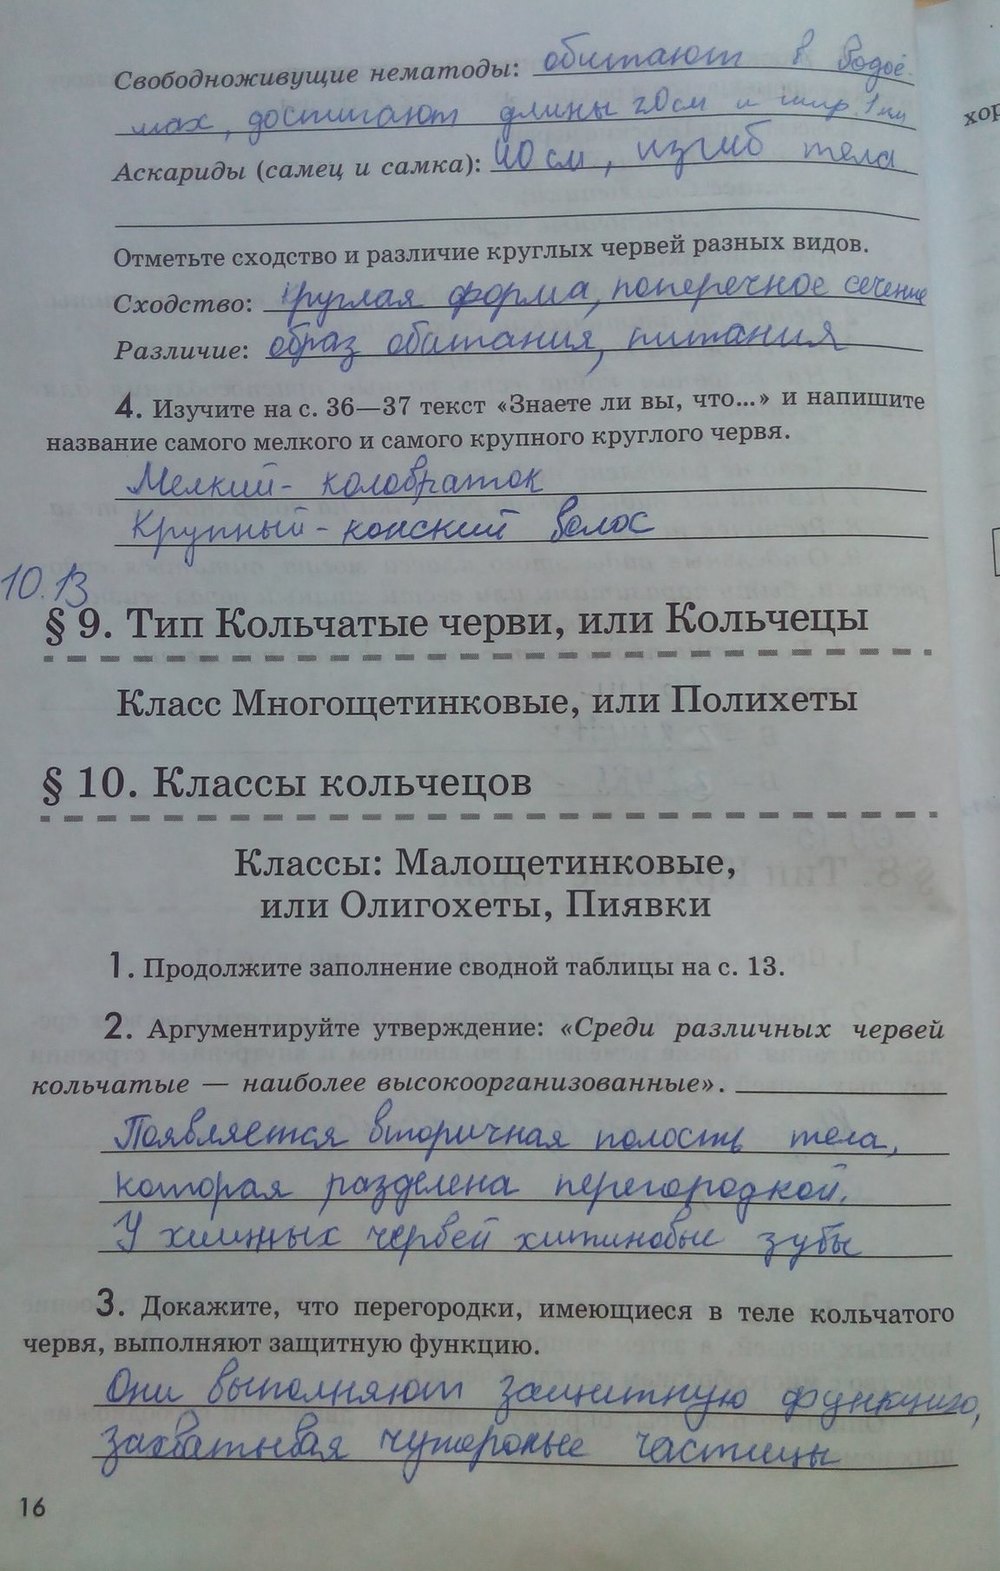 Свободноживущие нематоды: обитают в водоё-
мах, достигают длины 20см и шир. 1мм
хор
Аскариды (самец и самка): 40 см, изгиб тела
Отметьте сходство и различие круглых червей разных видов.
Сходство: круглая форма, поперечное сечение
Различие: образ обитания, питания
4. Изучите на с. 36—37 текст «Знаете ли вы, что...» и напишите
название самого мелкого и самого крупного круглого червя.
Мелкий - коловраток
Крупный - конский волос
10.13
§ 9. Тип Кольчатые черви, или Кольчецы
Класс Многощетинковые, или Полихеты
§ 10. Классы кольчецов
Классы: Малощетинковые,
или Олигохеты, Пиявки
1. Продолжите заполнение сводной таблицы на с. 13.
2. Аргументируйте утверждение: «Среди различных червей
кольчатые — наиболее высокоорганизованные».
Появляется вторичная полость тела,
которая разделена перегородкой.
У хищных червей хитиновые зубы
3. Докажите, что перегородки, имеющиеся в теле кольчатого
червя, выполняют защитную функцию.
Они выполняют защитную функцию,
захватывая чужеродные частицы
16